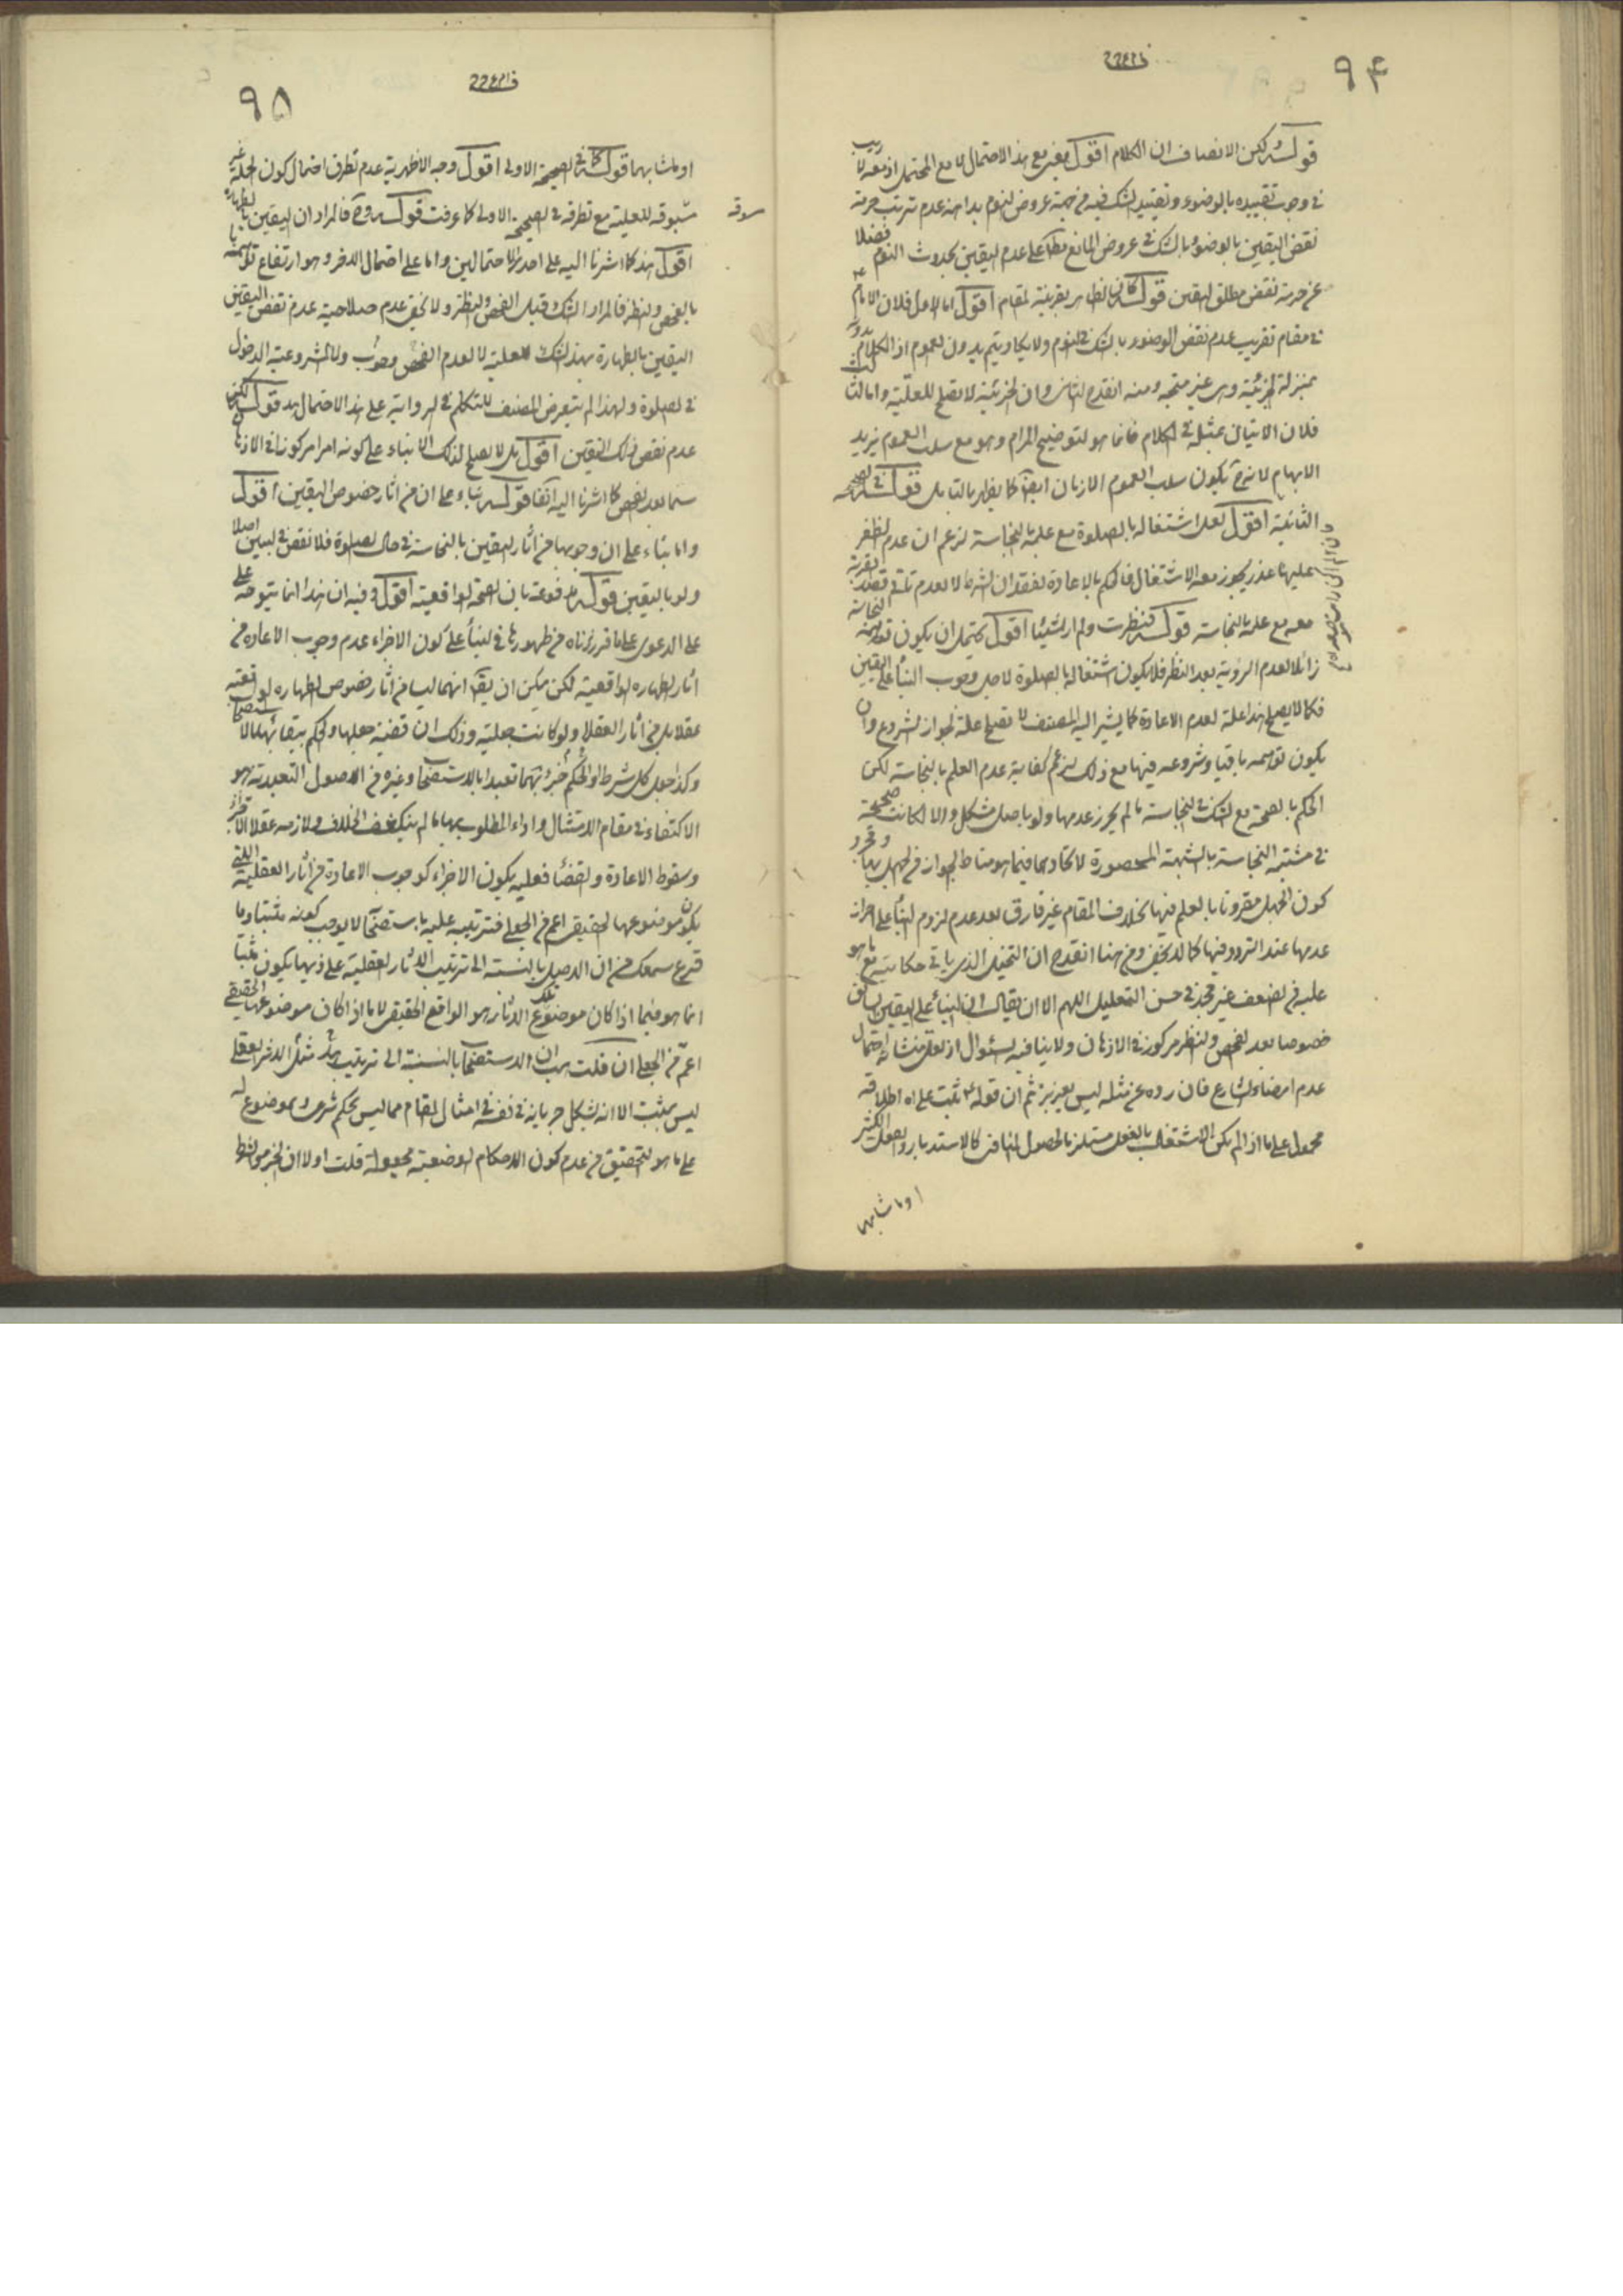 ۹۴
قوله و لكن الانصاف ان الكلام اقول يعنى مع هذا الاحتمال لا مع المحتمل اذ معه لا ريب
فى وجوب تقييده بالوضوء و تقييد الشك فيه من جهة عروض النوم بداهة عدم ترتب حرمة
نقض اليقين بالوضوء بالشك فى عروض المانع مطلقا على عدم اليقين بحدوث النوم فضلا
عن حرمة نقض مطلق اليقين قوله كما فى الظاهر بقرينة المقام اقول اما الاول فلان الامام ع
فى مقام تقريب عدم نقض الوضوء بالشك فى النوم و لا يكاد يتم بدون العموم اذ الكلام بدونه
بمنزلة الجزئية و هى غير منتجة و منه انقدح الثانى و ان الجزئية لا تصلح للعلية و اما الثالث
فلان الاتيان بمثله فى الكلام فانما هو لتوضيح المرام و هو مع سلب العموم يزيد
الابهام لا يكون سلب العموم الا زمان ايضا كما يظهر بالتامل قوله فى الصحيحة
الثانية اقول لعل اشتغاله بالصلوة مع علمه بالنجاسة لزعم ان عدم الظفر
عليها عذر يجوز معه الاشتغال فالحكم بالاعادة لفقدان الشرط لا لعدم تاتى قصد القربة
معه مع علمه بالنجاسة قوله فنظرت و لم ار شيئا اقول يحتمل ان يكون توهمه النجاسة
زائلا لعدم الرؤية بعد النظر فلا يكون اشتغاله بالصلوة لاجل وجوب البناء على اليقين
فكما لا يصلح هذا علة لعدم الاعادة كما يشير اليه المصنف لا تصلح علة لجواز الشروع و ان
يكون توهمه باقيا و شروعه فيها مع ذلك لزعم كفاية عدم العلم بالنجاسة لكن
الحكم بالصحة مع الشك فى النجاسة ما لم يحرز عدمها و لو باصل مشكل و الا لكانت صحيحة
فى مشتبه النجاسة بالشبهة المحصورة لاتحادهما فيما هو مناط الجواز من الجهل بها و مجرد
كون الجهل مقرونا بالعلم فيها بخلاف المقام غير فارق بعد عدم لزوم البناء على احراز
عدمها عند التردد فيها كما لا يخفى و من هنا انقدح ان التخيل الذى ياتى حكايته مع ما هو
عليه من الضعف غير مجد فى حسن التعليل اللهم الا ان يقال ان البناء على اليقين السابق
خصوصا بعد الفحص و النظر مركوز فى الاذهان و لا ينافيه السئوال اذ لعل منشائه احتمال
عدم امضاء الشارع فان ردعه عن مثله ليس بعزيز ثم ان قوله ع تثبت على اه اطلاقه
محمول على ما اذا لم يكن الاشتغال بالغسل مستلزما لحصول المنافى كالاستدبار و الفعل الكثير
او ما شابهها
۹۵
او ما شابههما قوله كما فى الصحيحة الاولى اقول وجه الاظهرية عدم تطرق احتمال كون الجملة غير
مسوقة للعلية مع تطرقه فى الصحيحة الاولى كما عرفت قوله و ح فالمراد ان اليقين بالطهارة
اقول هذا كما اشرنا اليه على احد الاحتمالين و اما على احتمال الاخر و هو ارتفاع توهمه
بالفحص و النظر فالمراد الشك قبل الفحص و النظر و لا يخفى عدم صلاحية عدم نقض اليقين
اليقين بالطهارة بهذا الشك للعلية لا لعدم الفحص وجوب و لا لمشروعية الدخول
فى الصلوة و لهذا لم يتعرض المصنف للتكلم فى الرواية على هذا الاحتمال
عدم نقض ذلك اليقين اقول بل لا يصلح لذلك الا بناء على كونه امرا مركوزا فى الاذهان
سيما بعد الفحص كما اشرنا اليه آنفا قوله بناء على ان من اثار خصوص اليقين اقول
و اما بناء على ان وجوبها من اثار اليقين بالنجاسة فى حال الصلوة فلا نقض فى البين اصلا
و لو باليقين قوله مدفوعة بان الصحة الواقعية اقول و فيه ان هذا انما يتوجه
على الدعوى على ما قررناه من ظهورها فى البناء على كون الاجزاء عدم وجوب الاعادة من
اثار الطهارة الواقعية لكن يمكن ان يق انهما ليسا من اثار خصوص الطهارة الواقعية
عقلا بل من اثار العقل و لو كانت جعلية و ذلك ان قضية جعلها و الحكم ببقائها
و كذا جعل كل شرط او الحكم بجزئيتها تعبدا بالاستصحاب و غيره من الاصول التعبدية هو
الاكتفاء فى مقام الامتثال و اداء المطلوب بها ما لم ينكشف الخلاف و لازمه عقلا الاجزاء
و سقوط الاعادة و القضاء فعليه يكون الاجزاء كوجوب الاعادة من اثار العقلية التى
يكون موضوعها الحقيقى اعم من الجعلى فترتيبه عليه باستصحاب لا يوجب كونه مثبتا و ما
قرع سمعك من ان الاصل بالنسبة الى ترتيب الاثار العقلية على ذيها يكون مثبتا
انما هو فيما اذا كان موضوع تلك الاثار هو الواقع الحقيقى لا ما اذا كان موضوعها الحقيقى
اعم من الجعلى ان قلت هب ان الاستصحاب بالنسبة الى ترتيب هذا مثل الاثر العقلى
ليس بمثبت الا انه يشكل جريانه فى نفسه فى امثال المقام مما ليس بحكم شرعى و لا موضوع له
على ما هو التحقيق من عدم كون الاحكام الوضعية مجعولة قلت اولا ان الجزء و الشرط